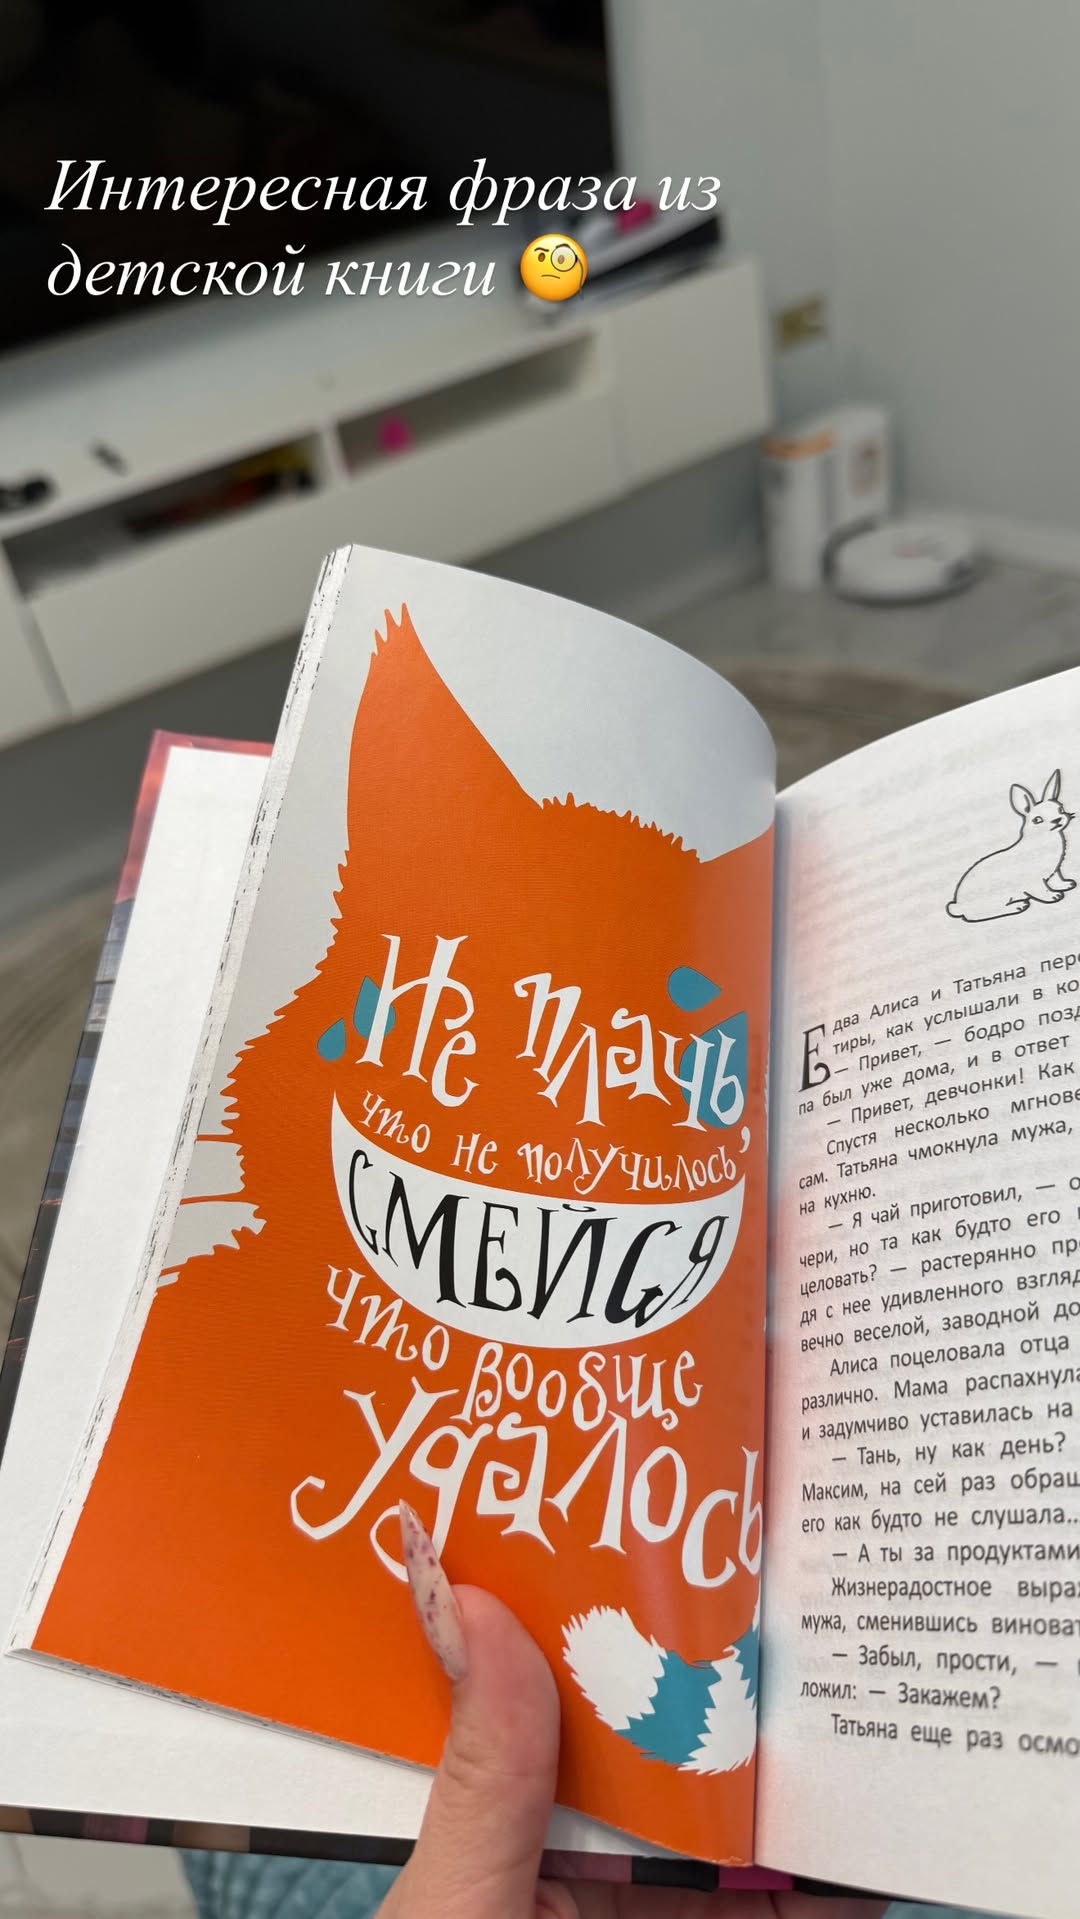 Интересная фраза из
детской книги
Не плачь,
что не получилось,
СМЕЙСЯ
что вообще
удалось
Едва Алиса и Татьяна
тиры, как услышали в
— Привет, — бодро
па был уже дома, и в ответ
— Привет, девчонки! Как
Спустя несколько
сам. Татьяна чмокнула мужа,
на кухню.
— Я чай приготовил, —
чери, но та как будто его
целовать? — растерянно
дя с нее удивленного
вечно веселой, заводной
Алиса поцеловала отца
различно. Мама распахнула
и задумчиво уставилась на
— Тань, ну как день?
Максим, на сей раз
его как будто не слушала...
— А ты за продуктами
Жизнерадостное
мужа, сменившись
— Забыл, прости, —
ложил: — Закажем?
Татьяна еще раз